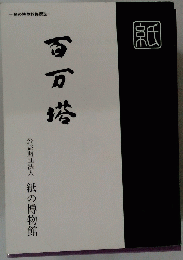 紙
百万塔
公益財団法人 紙の博物館